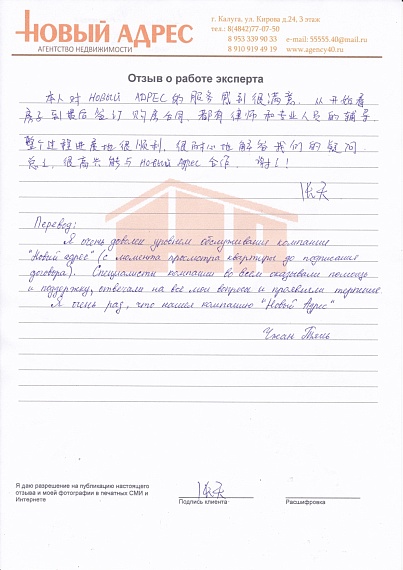 НОВЫЙ АДРЕС
АГЕНТСТВО НЕДВИЖИМОСТИ
г. Калуга, ул. Кирова д.24, 3 этаж
тел.: 8(4842)77-07-50
8 953 339 90 33 e-mail: 55555.40@mail.ru
8 910 919 49 19 www.agency40.ru
Отзыв о работе эксперта
本人对 НОВЫЙ АДРЕС 的服务感到很满意. 从开始看
房子到最后签订购房合同, 都有律师和专业人员的辅导.
整个过程进展地很顺利, 很耐心地解答我们的疑问.
总之, 很高兴能与 Новый Адрес 合作. 谢谢!
张天
Перевод:
Я очень доволен уровнем обслуживания компании
"Новый адрес" (с момента просмотра квартиры до подписания
договора). Специалисты компании во всем оказывали помощь
и поддержку, отвечали на все мои вопросы и проявляли терпение.
Я очень рад, что нашел компанию "Новый Адрес"
Чжан Тянь
Я даю разрешение на публикацию настоящего
отзыва и моей фотографии в печатных СМИ и
Интернете
张天
Подпись клиента Расшифровка